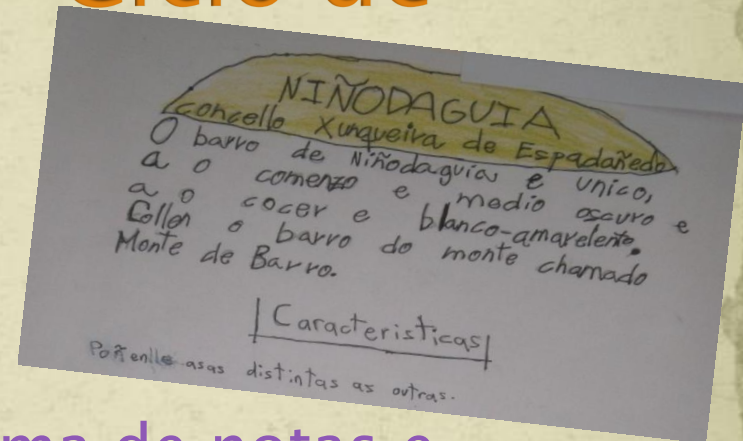 Ciclo de
NIÑODAGUIA
concello Xunqueira de Espadañedo
O barro de Niñodaguia e unico,
a o comenzo e medio oscuro e
a o cocer e blanco-amarelento.
Collen o barro do monte chamado
Monte de Barro.
Caracteristicas
Poñenlle asas distintas as outras.
ma de notas e